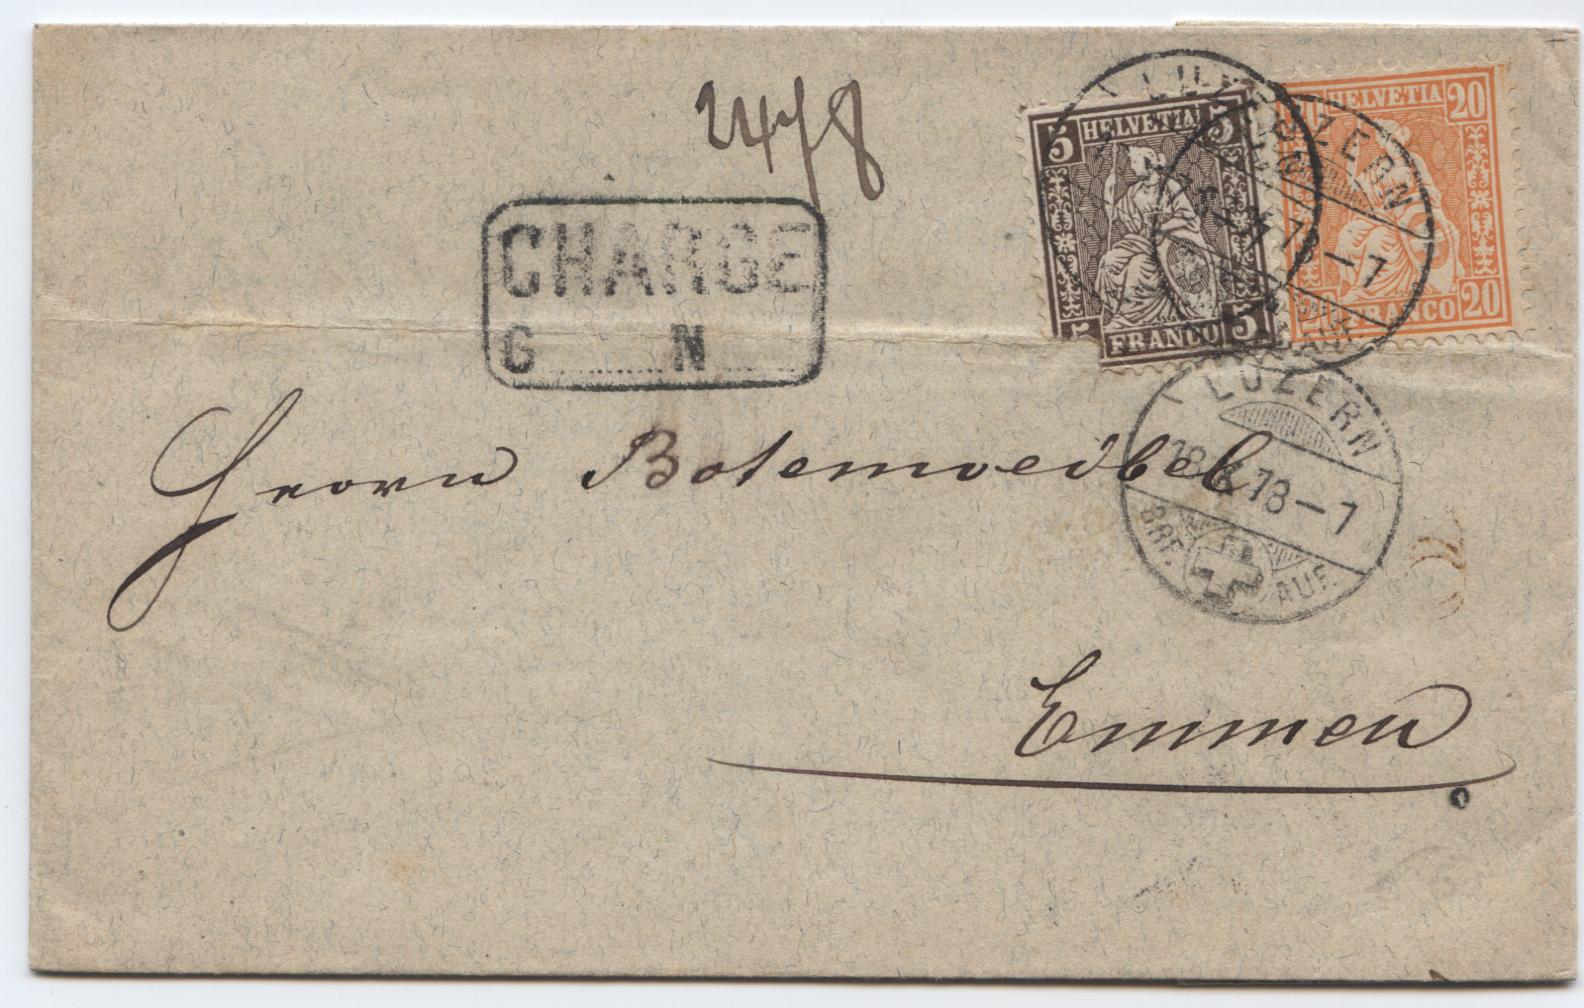 2478
CHARGE
G N
5 HELVETIA 5
5 FRANCO 5
HELVETIA 20
20 FRANCO 20
LUZERN
-7
LUZERN
18 78-7
BRF. AUF.
Herrn Botenweibel
Emmen